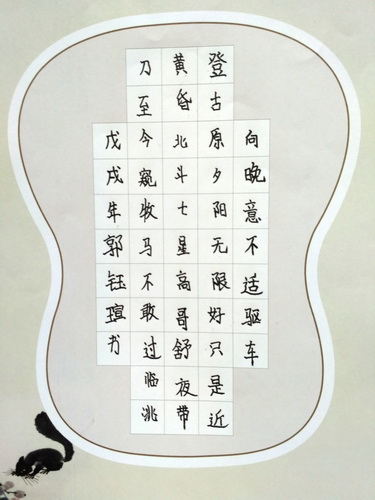 向晚意不适驱车
登古原夕阳无限好只是近
黄昏北斗七星高哥舒夜带
刀至今窥牧马不敢过临洮
戊戌年郭钰瑄书